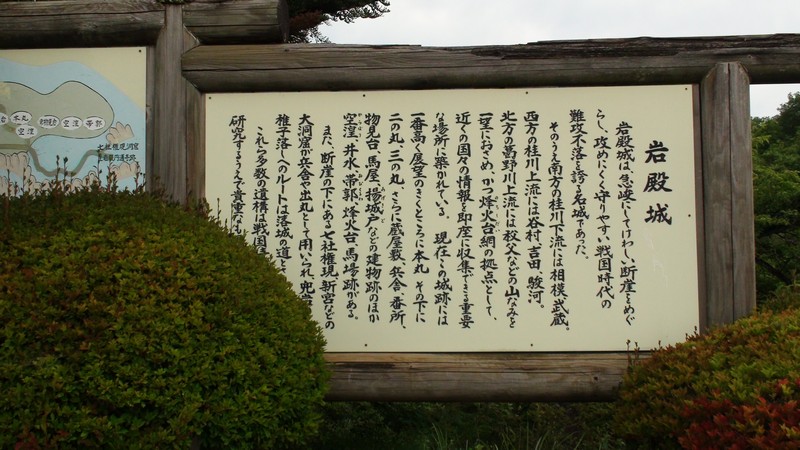 岩殿城
岩殿城は、急峻にしてけわしい断崖をめぐ
らし、攻めにくく守りやすい戦国時代の
難攻不落を誇る名城であった。
そのうえ南方の桂川下流には相模、武蔵。
西方の桂川上流には谷村、吉田、駿河。
北方の葛野川上流には秩父などの山なみを
一望におさめ、かつ烽火台網の拠点として、
近くの国々の情報を即座に収集できる重要
な場所に築かれている。現在この城跡には
一番高く展望のきくところに本丸、その下に
二の丸、三の丸、さらに蔵屋敷、兵舎、番所、
物見台、馬屋、揚城戸などの建物跡のほか
空湟、井水、帯郭、烽火台、馬場跡がある。
また、断崖の下にある七社権現、新宮などの
大洞窟が兵舎や出丸として用いられ、兜岩
稚子落へのルートは落城の道と
これら多数の遺構は戦国
研究するうえで貴重なも
本丸
空湟
空湟
帯郭
七社権現洞窟